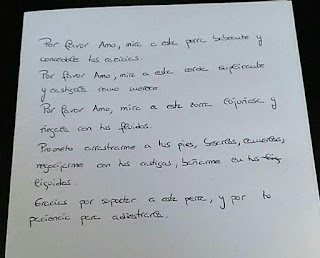 Por favor Amo, mira a esta perra babeante y
concedele tus caricias.
Por favor Amo, mira a esta cerda suplicante
y castigala como merece
Por favor Amo, mira a esta zorra lujuriosa y
riegala con tus fluidos.
Prometo arrastrarme a tus pies, besarlos, lamerlos,
regocijarme con tus castigos, bañarme en tus
liquidos.
Gracias por soportar a esta perra, y por tu
paciencia para adiestrarla.